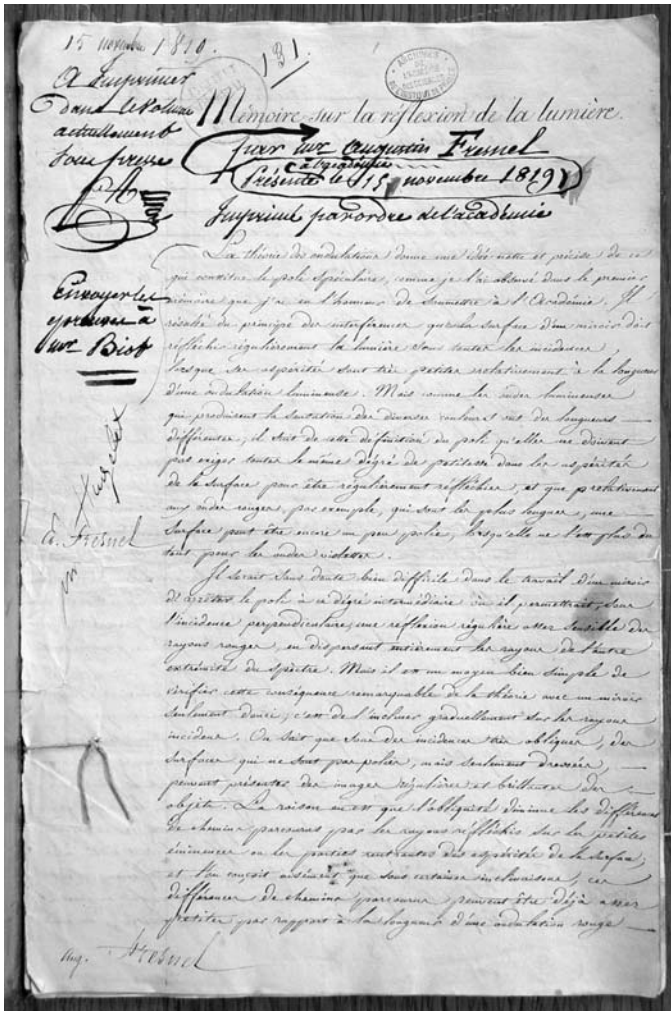 15 novembre 1819.
131.
ARCHIVES
à Imprimer
dans le volume
actuellement
sous presse
Mémoire sur la réflexion de la lumière.
par Mr Augustin Fresnel
à l'académie
Présenté le 15 novembre 1819
Imprimé par ordre de l'académie
Envoyer les
épreuves à
Mr Biot
A. Fresnel
La théorie des ondulations donne une idée nette et précise de ce
qui constitue le poli spéculaire, comme je l'ai observé dans le premier
mémoire que j'ai eu l'honneur de soumettre à l'Académie. Il
résulte du principe des interférences que la surface d'un miroir doit
réfléchir régulièrement la lumière sous toutes les incidences,
lorsque ses aspérités sont très petites relativement à la longueur
d'une ondulation lumineuse. Mais comme les ondes lumineuses
qui produisent la sensation des diverses couleurs ont des longueurs
différentes, il suit de cette définition du poli qu'elles ne doivent
pas exiger toutes le même dégré de petitesse dans les aspérités
de la surface pour être régulièrement réfléchies, et que relativement
aux ondes rouges, par exemple, qui sont les plus longues, une
surface peut être encore un peu polie, lorsqu'elle ne l'est plus du
tout pour les ondes violettes.
Il serait sans doute bien difficile dans le travail d'un miroir
d'arrêter le poli à ce dégré intermédiaire où il permettrait, sous
l'incidence perpendiculaire, une réflexion régulière assez sensible des
rayons rouges, en dispersant entièrement les rayons de l'autre
extrémité du spectre. Mais il est un moyen bien simple de
vérifier cette conséquence remarquable de la théorie avec un miroir
seulement douci; c'est de l'incliner graduellement sur les rayons
incidens. On sait que sous des incidences très obliques, des
surfaces qui ne sont pas polies, mais seulement dressées,
peuvent présenter des images régulières et brillantes des
objets. La raison en est que l'obliquité diminue les différences
de chemins parcourus par les rayons réfléchis sur les petites
éminences ou les parties rentrantes des aspérités de la surface;
et l'on conçoit aisément que sous certaines inclinaisons, ces
différences de chemins parcourus peuvent être déjà assez
petites par rapport à la longueur d'une ondulation rouge
Aug. Fresnel